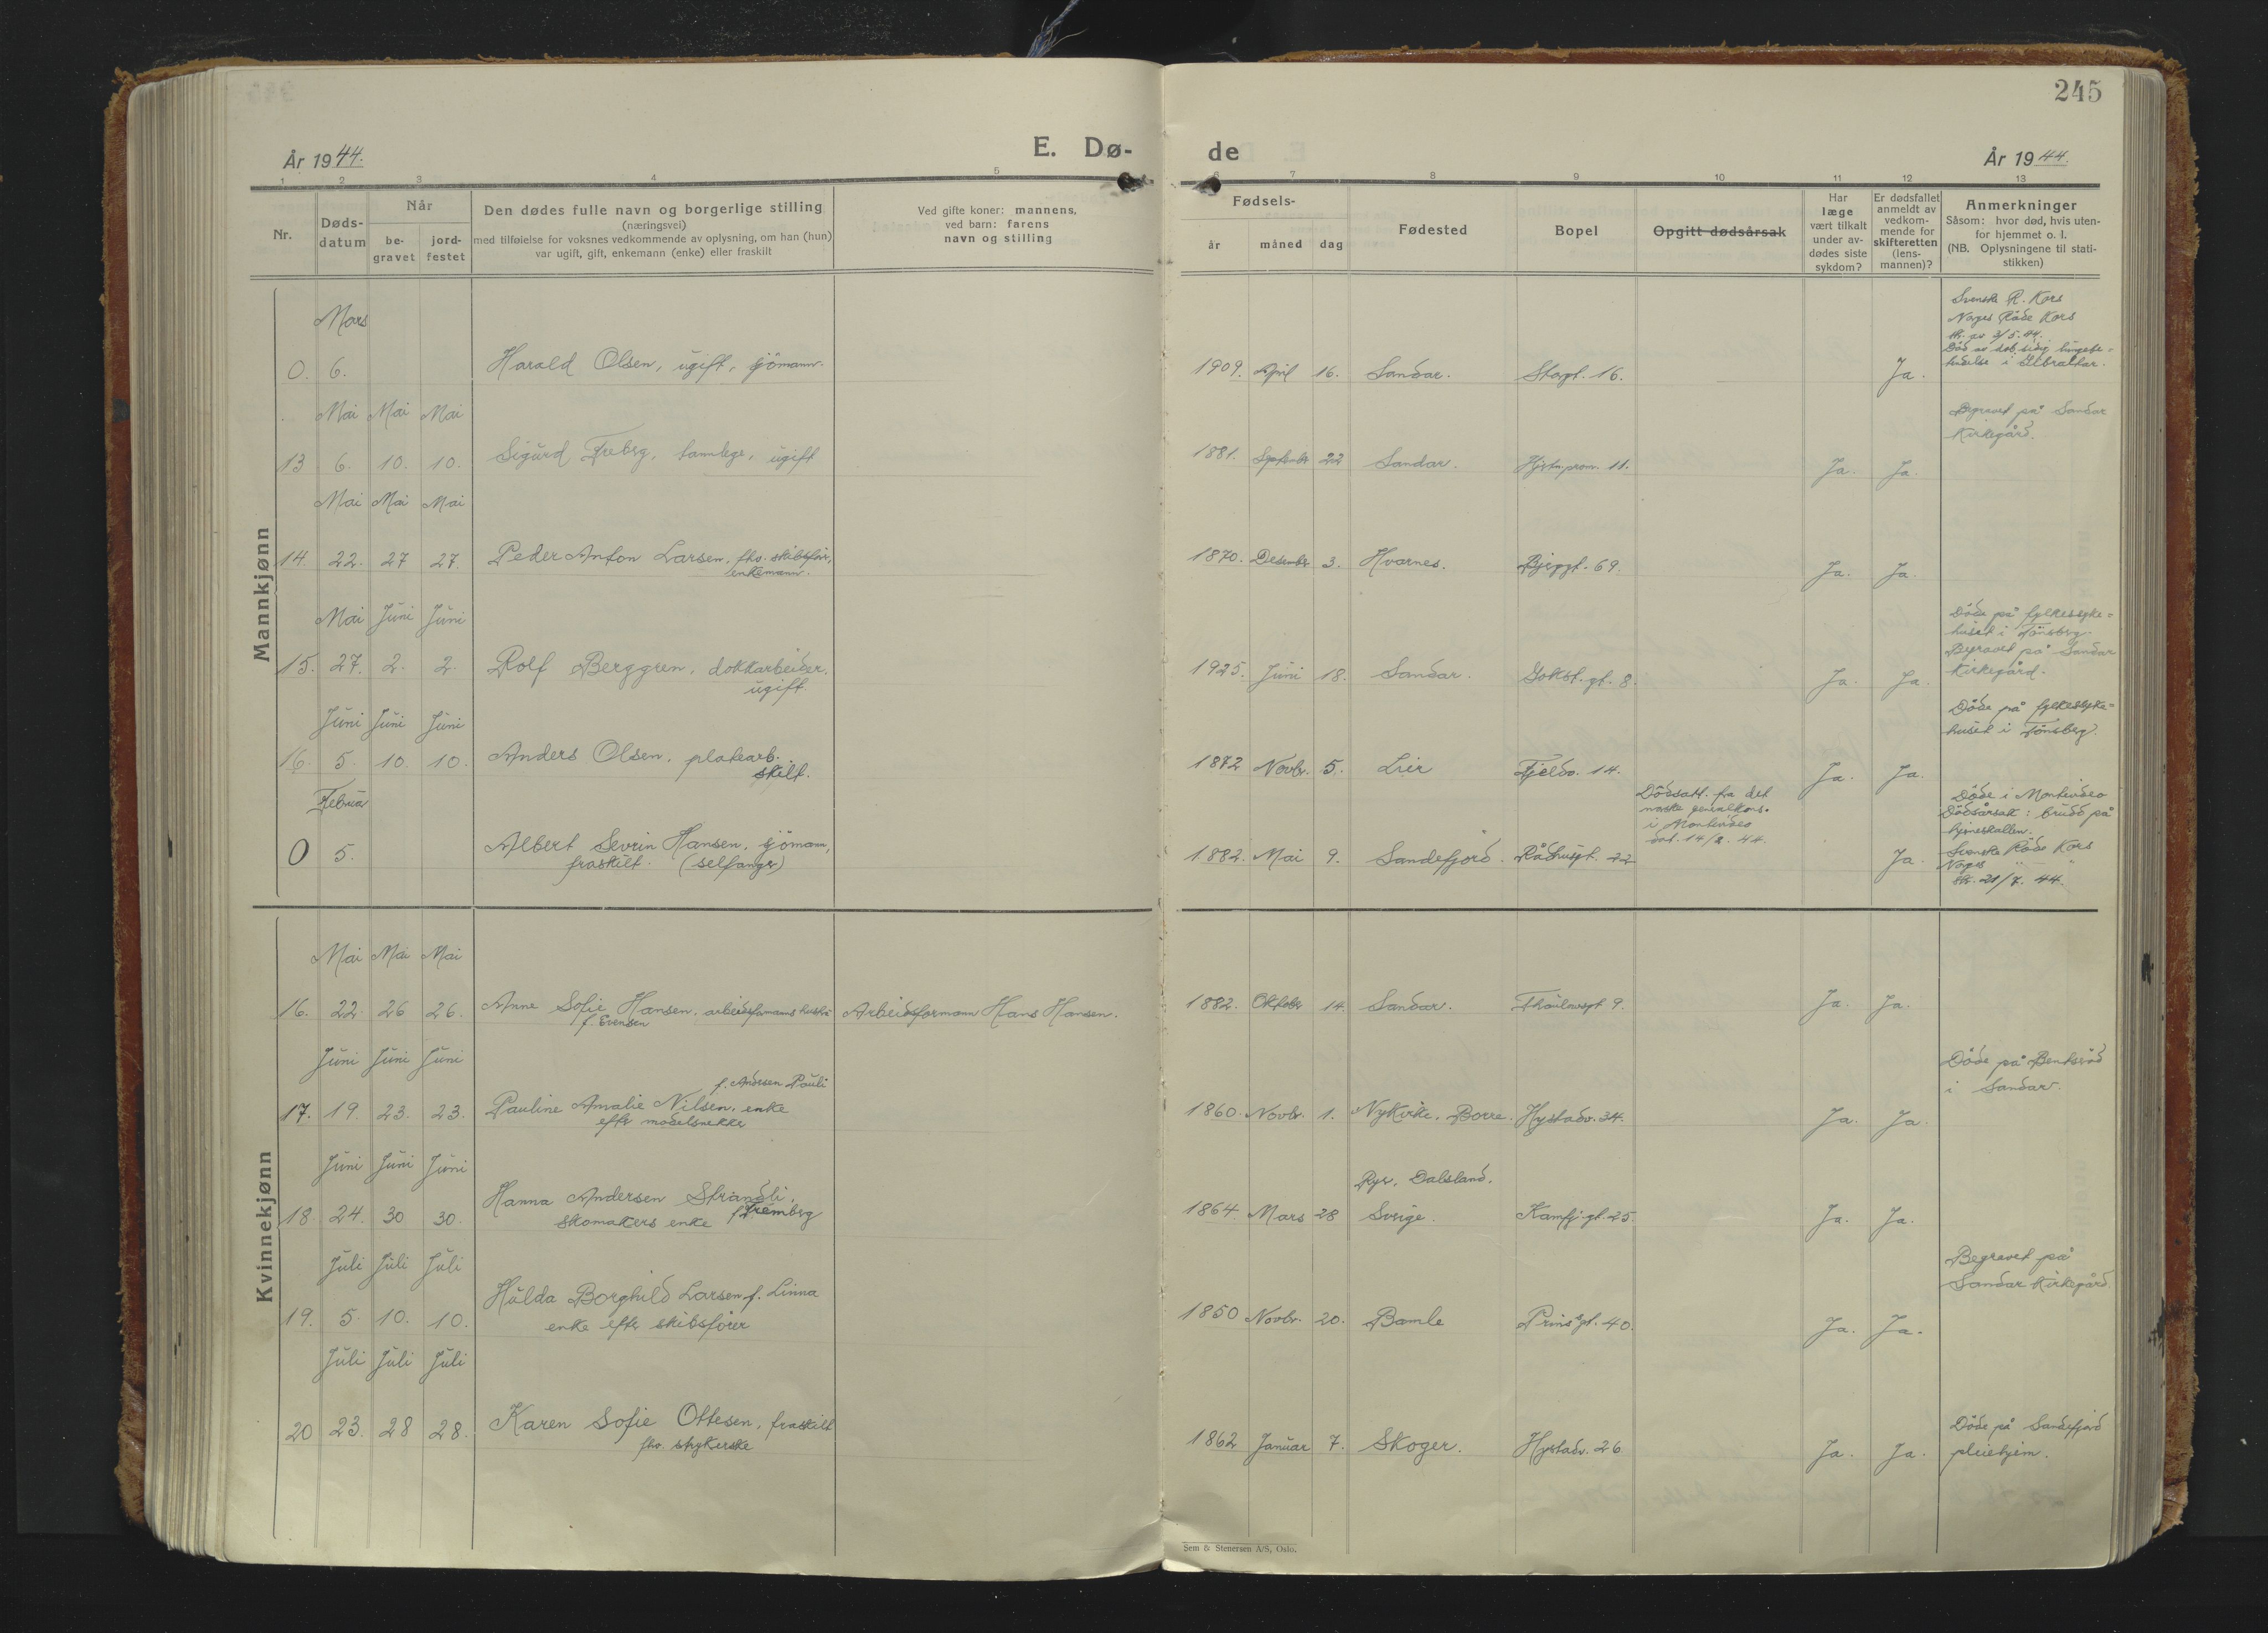 245
År 1944.
E. Dø-
de
År 1944.
1 2 3 4 5 6 7 8 9 10 11 12 13
Nr.
Døds-
datum
Når
be-
gravet
jord-
festet
Den dødes fulle navn og borgerlige stilling
(næringsvei)
med tilføielse for voksnes vedkommende av oplysning, om han (hun)
var ugift, gift, enkemann (enke) eller fraskilt
Ved gifte koner: mannens,
ved barn: farens
navn og stilling
Fødsels-
år måned dag
Fødested
Bopel
Opgitt dødsårsak
Har
læge
vært tilkalt
under av-
dødes siste
sykdom?
Er dødsfallet
anmeldt av
vedkom-
mende for
skifteretten
(lens-
mannen)?
Anmerkninger
Såsom: hvor død, hvis uten-
for hjemmet o. l.
(NB. Oplysningene til stati-
stikken)
Mannkjønn
Mars
0. 6. Harald Olsen, ugift, sjömann. 1909. April 16. Sandar. Storgt. 16. Ja.
Svenske R. Kors
Norges Röde Kors
Skr. av 3/5.44.
Död av dob.sidig lungebe-
tendelse i Gibraltar.
Mai Mai Mai
13 6. 10. 10. Sigurd Freberg, tannlege, ugift 1881. September 22 Sandar. Hjertn.prom. 11. Ja. Ja.
Begravet på Sandar
Kirkegård.
Mai Mai Mai
14. 22. 27 27. Peder Anton Larsen, fhv. skibsför., 1870. Desember 3. Hvarnes. Bjerggt. 69. Ja. Ja.
enkemann.
Mai Juni Juni
15. 27. 2. 2. Rolf Berggren, dokkarbeider. 1925. Juni 18. Sandar. Gokst.gt. 8. Ja. Ja.
ugift
Döde på fylkessyke-
huset i Tönsberg.
Begravet på Sandar
Kirkegård.
Juni Juni Juni
16. 5. 10. 10. Anders Olsen, platearb. 1872 Novbr. 5. Lier Fjeldv. 14. Ja. Ja.
skilt.
Döde på fylkessyke-
huset i Tönsberg.
Februar
0 5. Albert Sevrin Hansen, sjömann, 1882. Mai 9. Sandefjord. Rådhusgt. 22 Ja.
fraskilt. (selfanger)
Dödsatt. fra det
norske generalkons.
i Montevideo
dat. 14/2. 44.
Döde i Montevideo
Dödsårsak: brudd på
hjerneskallen.
Svenske Röde Kors
Norges " — "
Skr. 21/7. 44.
Kvinnekjønn
Mai Mai Mai
16. 22. 26 26. Anne Sofie Hansen, arbeidsformanns hustru Arbeidsformann Hans Hansen. 1882. Oktober 14. Sandar. Thaulowsgt 9. Ja. Ja.
f. Evensen
Juni Juni Juni
f. Andersen Pauli
17. 19. 23. 23. Pauline Amalie Nilsen, enke 1860. Novbr. 1. Nykirke, Borre. Hystadv. 34. Ja. Ja.
efter modelsnekker
Döde på Bentsröd
i Sandar.
Juni Juni Juni
18. 24. 30 30. Hanna Andersen Strandli, 1864. Mars 28 Ryr, Dalsland.
Sverige. Kamfj.gt. 25. Ja. Ja.
skomakers enke
Juli Juli Juli
19. 5. 10. 10. Hulda Borghild Larsen f. Linna 1850 Novbr. 20. Bamle Prinsgt. 40. Ja. Ja.
enke efter skibsförer
Begravet på
Sandar Kirkegård.
Juli Juli Juli
20 23. 28 28. Karen Sofie Ottesen, fraskilt 1862 Januar 7. Skoger. Hystadv. 26. Ja. Ja.
fhv. strykerske
Döde på Sandefjord
pleiehjem.
Sem & Stenersen A/S, Oslo.